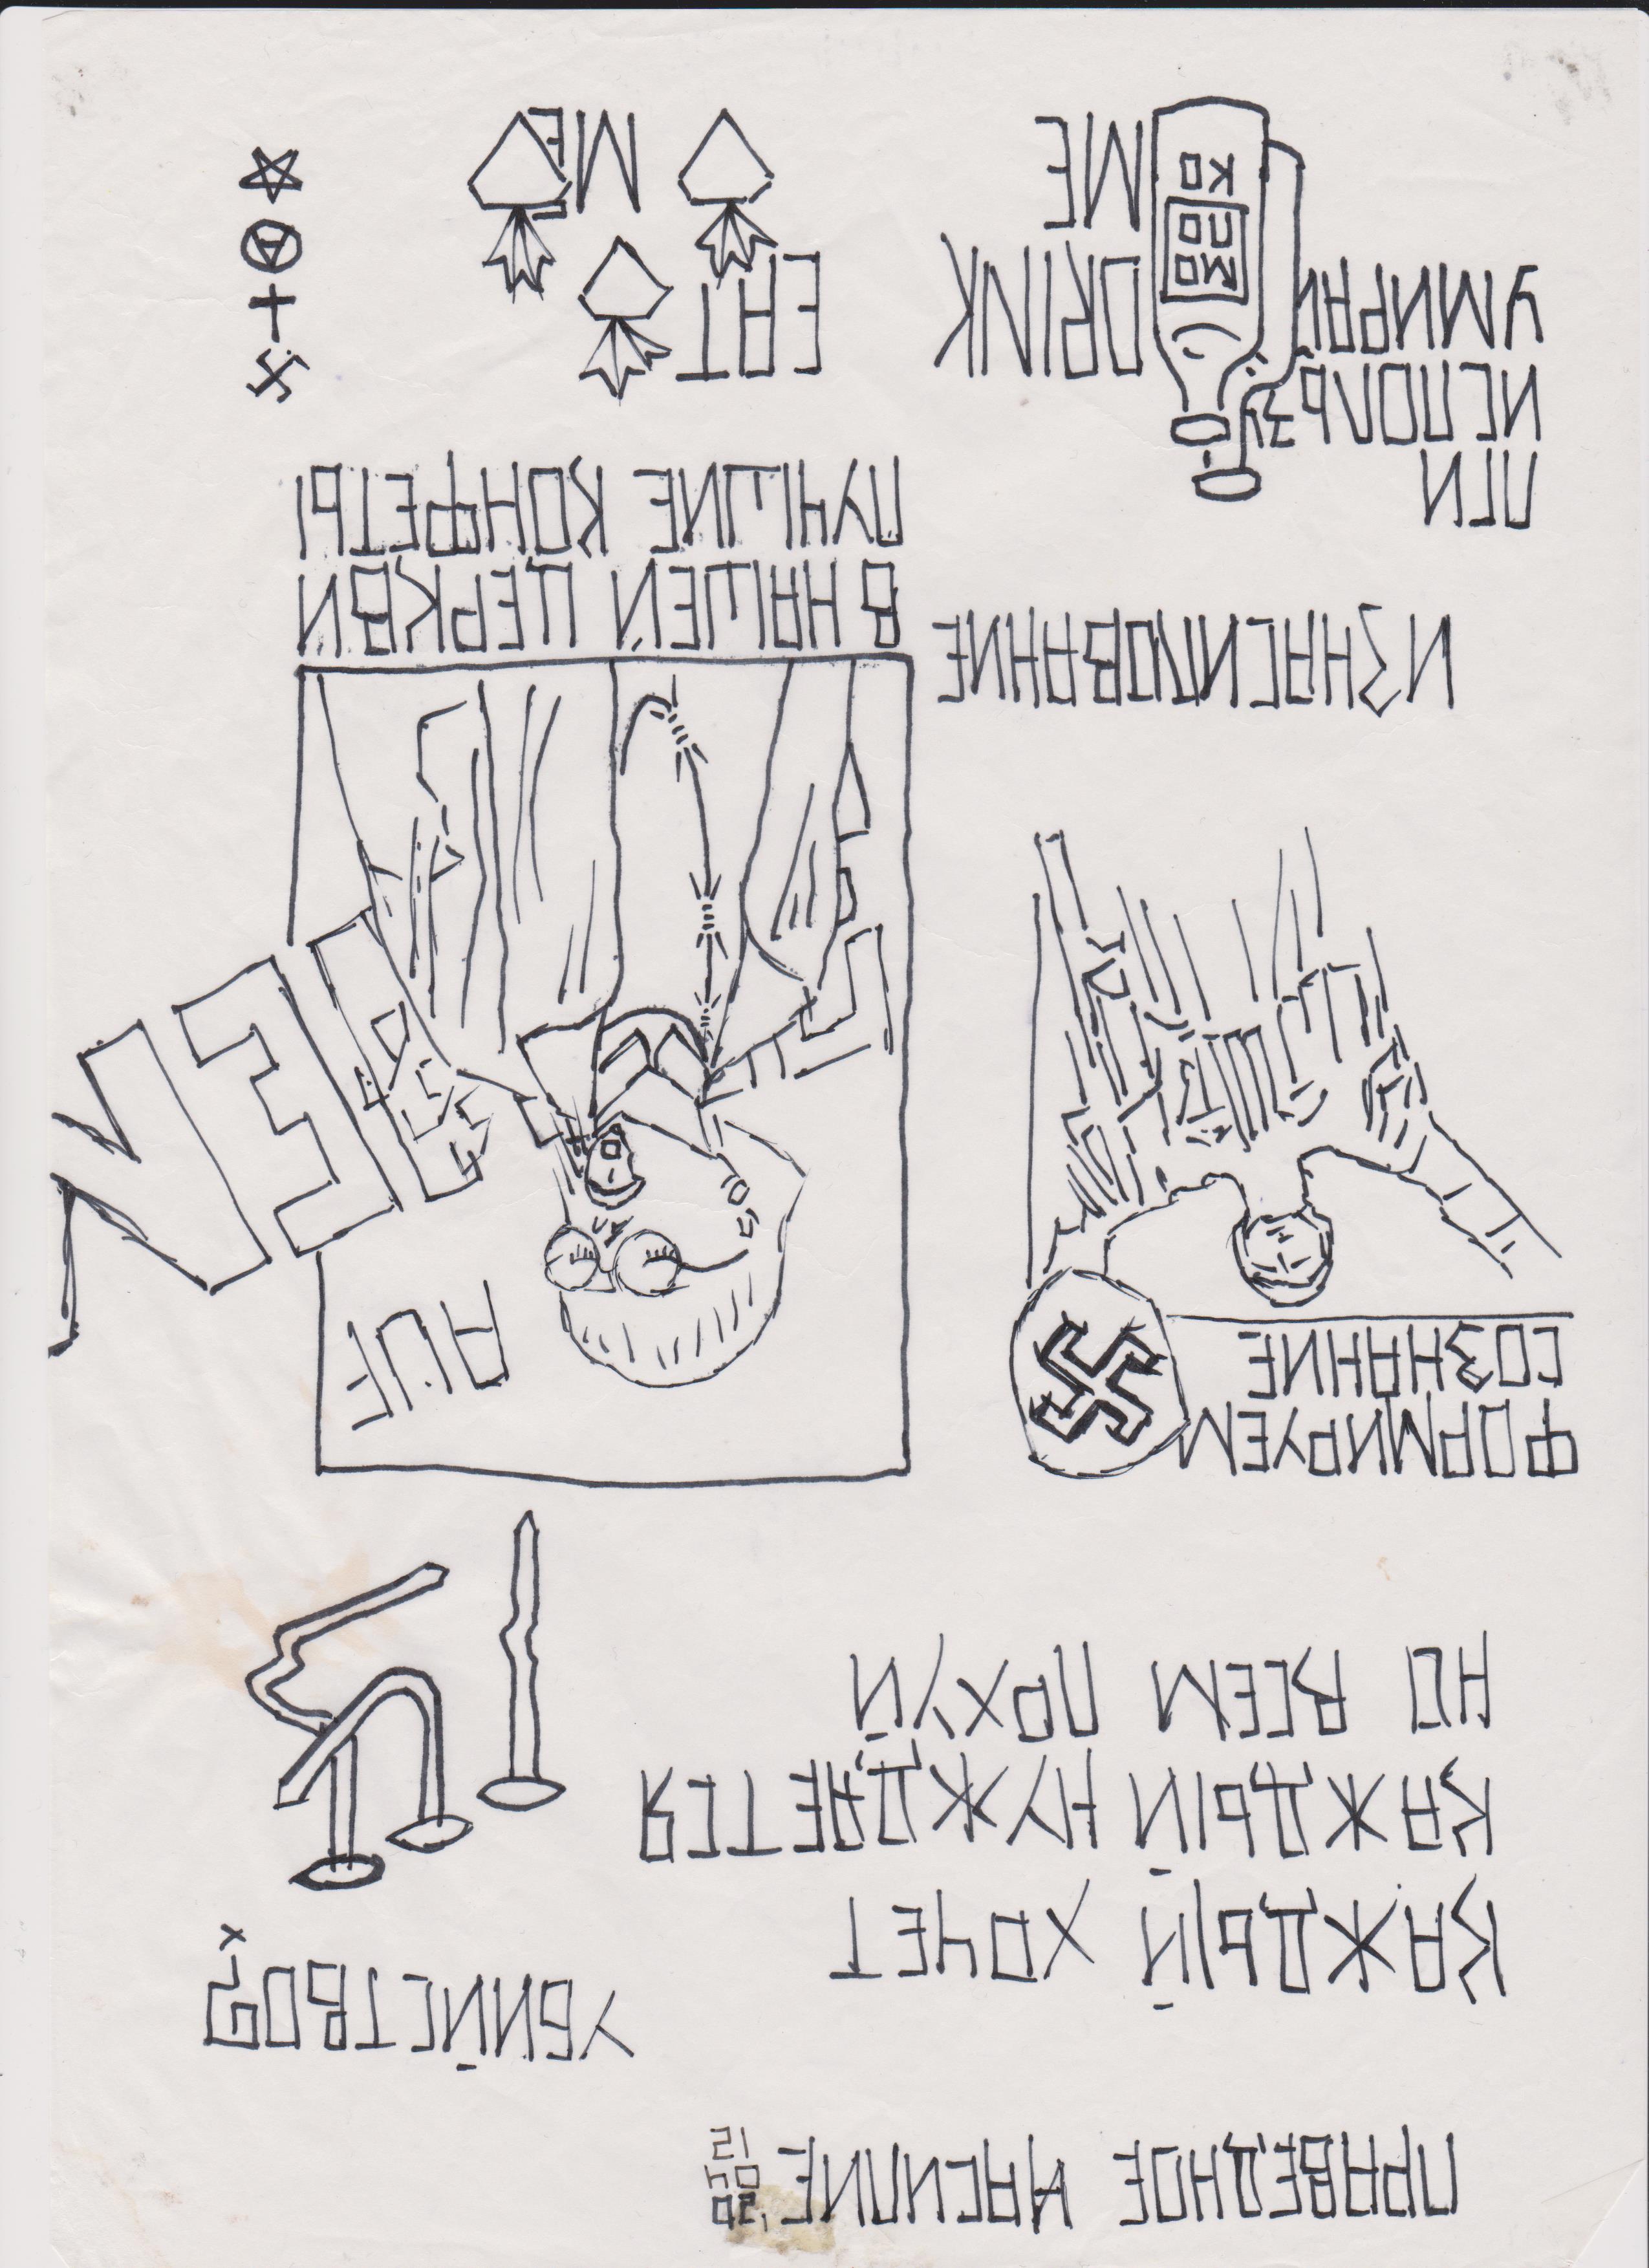 ПРАВЕДНОЕ НАСИЛИЕ '20
04
12
УБИЙСТВО?
КАЖДЫЙ ХОЧЕТ
КАЖДЫЙ НУЖДАЕТСЯ
НО ВСЕМ ПОХУЙ
ФОРМИРУЕМ
СОЗНАНИЕ
AUF
ИЗНАСИЛОВАНИЕ
В НАШЕЙ ЦЕРКВИ
ЛУЧШИЕ КОНФЕТЫ
ЛГИ
ИСПОЛЬЗУ
УМИРАЙ
МО
ЛО
КО
DRINK
ME
EAT
ME
A